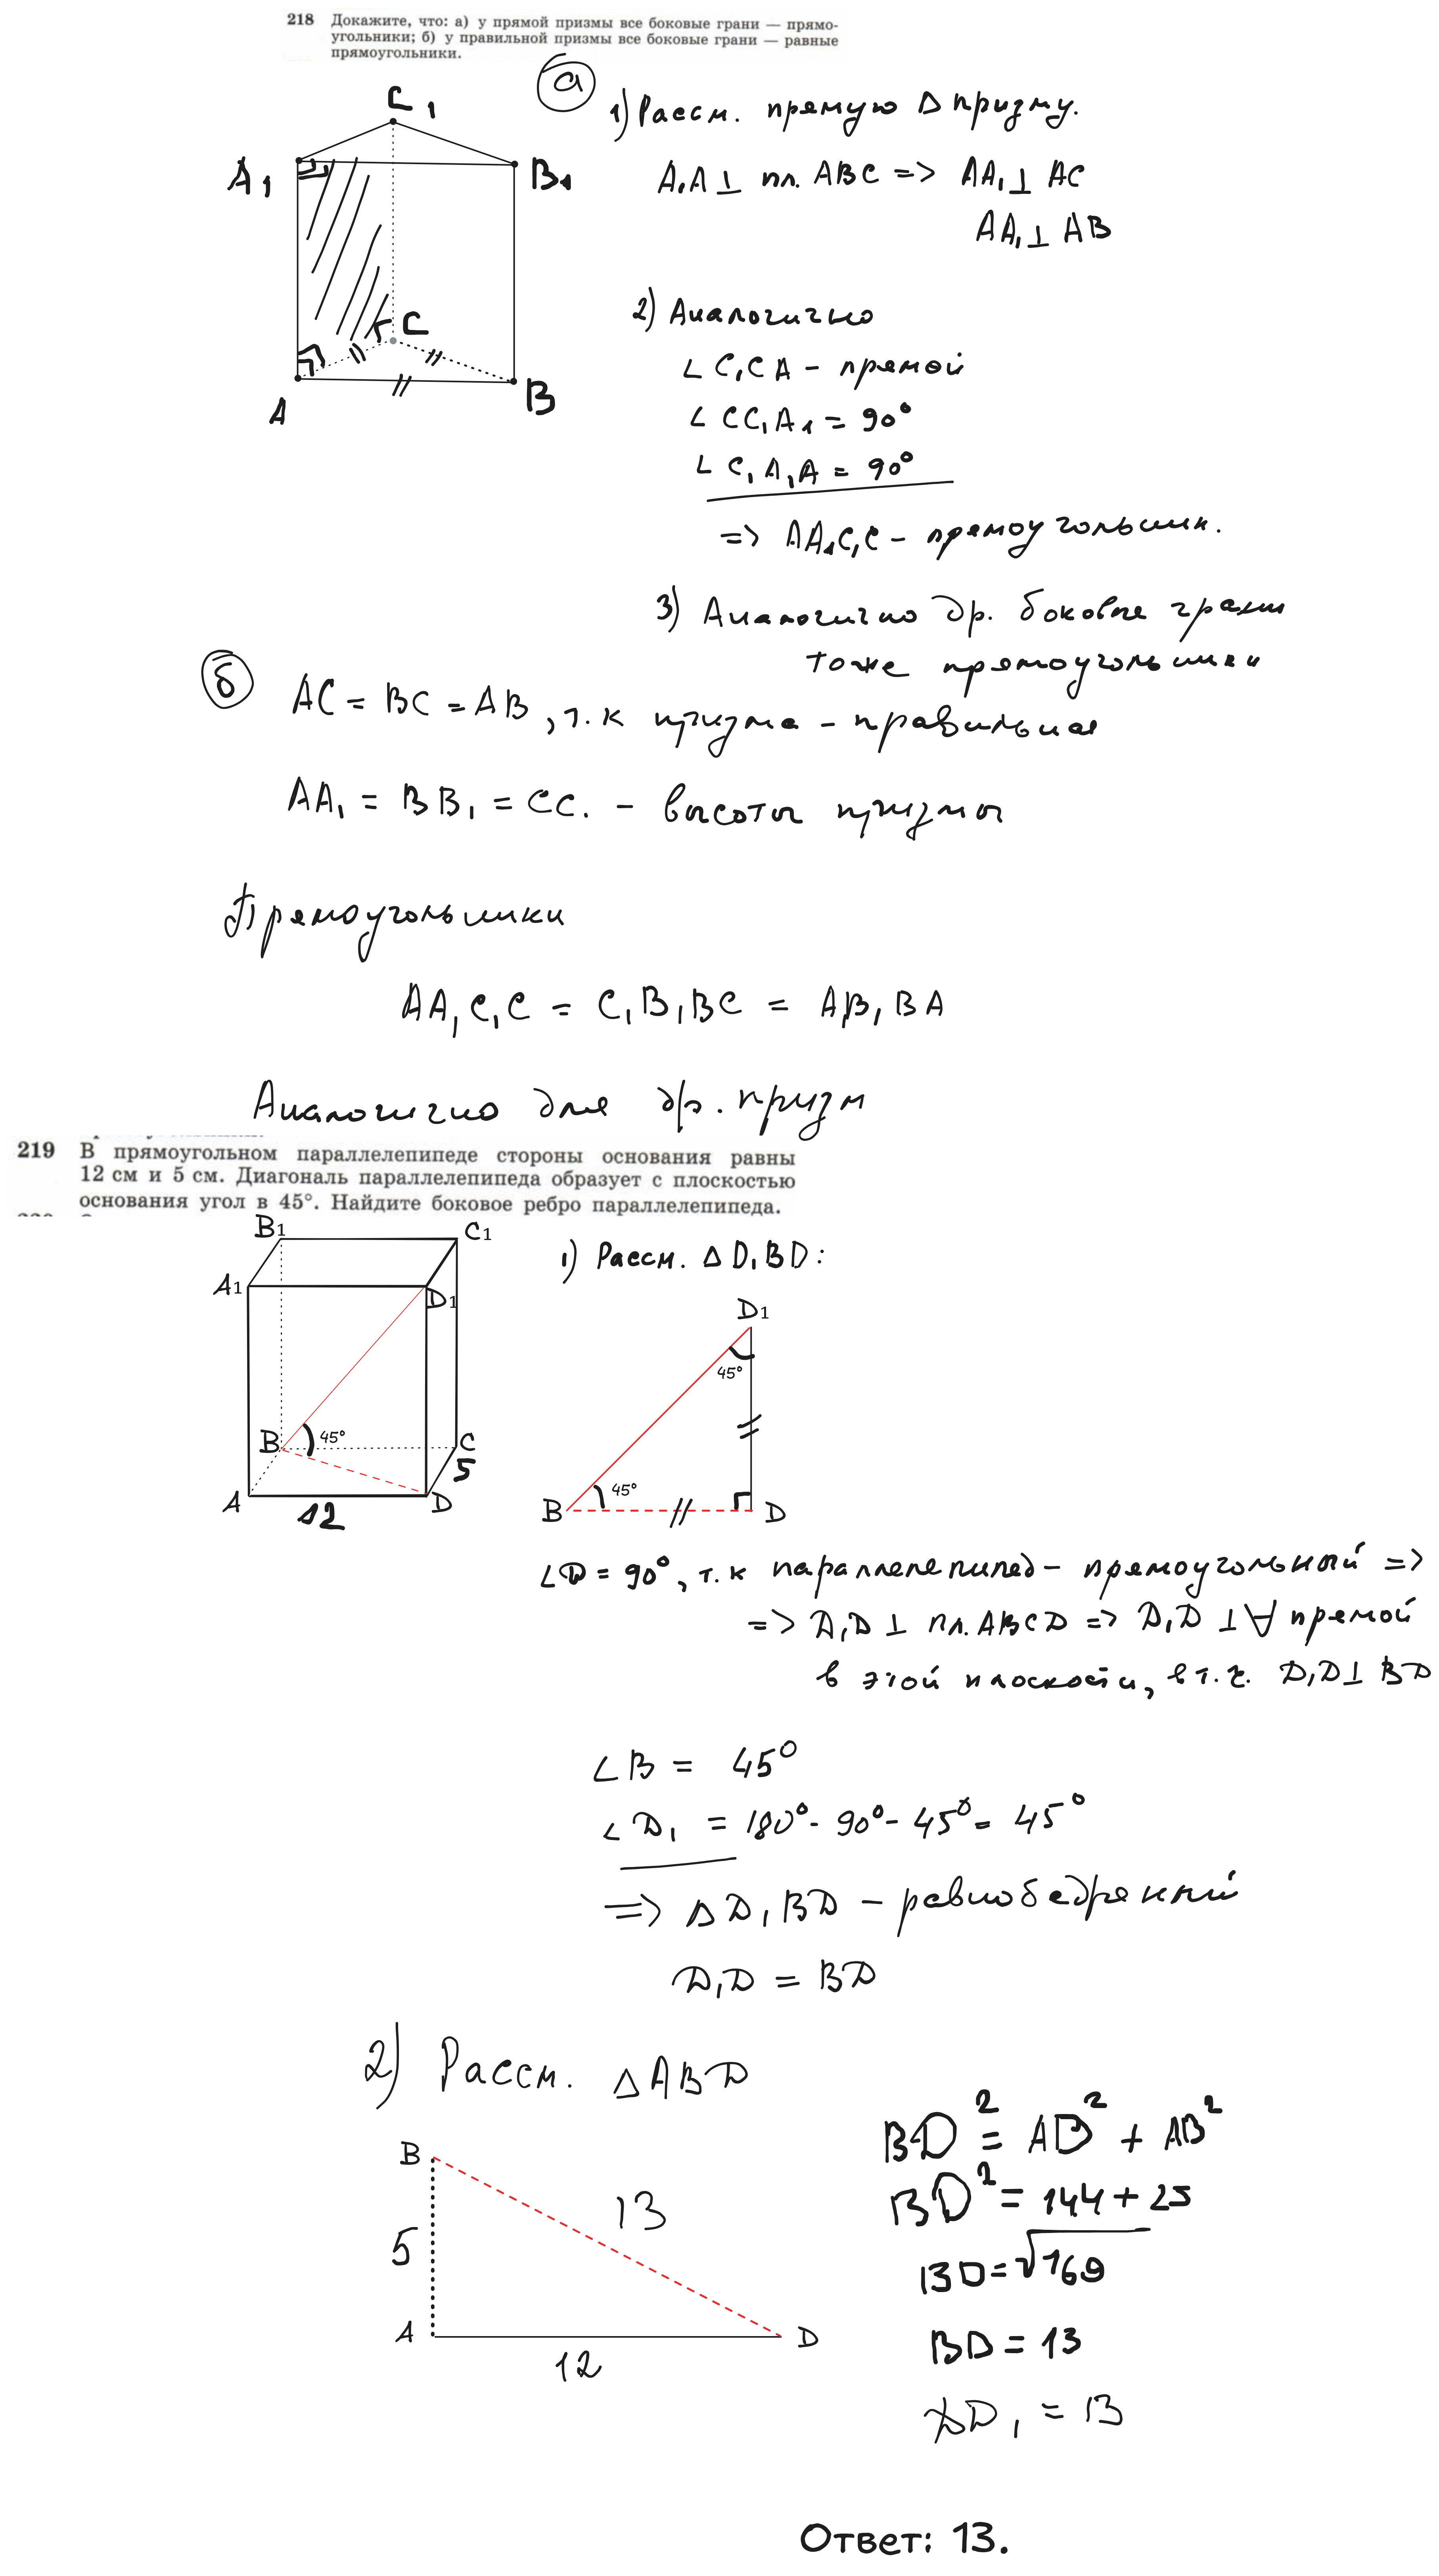 218 Докажите, что: а) у прямой призмы все боковые грани — прямо-
угольники; б) у правильной призмы все боковые грани — равные
прямоугольники.
а
C1
A1
B1
C
A
B
1) Рассм. прямую Δ призму.
A1A ⊥ пл. ABC => AA1 ⊥ AC
AA1 ⊥ AB
2) Аналогично
∠ C1CA - прямой
∠ CC1A1 = 90°
∠ C1A1A = 90°
=> AA1C1C - прямоугольник.
3) Аналогично др. боковые грани
тоже прямоугольники
б
AC = BC = AB, т.к призма - правильная
AA1 = BB1 = CC1 - высоты призмы
Прямоугольники
AA1C1C = C1B1BC = A1B1BA
Аналогично для др. призм
219 В прямоугольном параллелепипеде стороны основания равны
12 см и 5 см. Диагональ параллелепипеда образует с плоскостью
основания угол в 45°. Найдите боковое ребро параллелепипеда.
B1
C1
A1
D1
B
45°
C
5
A
12
D
1) Рассм. Δ D1BD:
D1
45°
45°
B
D
∠D = 90°, т.к параллелепипед - прямоугольный =>
=> D1D ⊥ пл. ABCD => D1D ⊥ ∀ прямой
в этой плоскости, в т.ч. D1D ⊥ BD
∠B = 45°
∠D1 = 180° - 90° - 45° = 45°
=> Δ D1BD - равнобедренный
D1D = BD
2) Рассм. ΔABD
B
13
5
A
D
12
BD² = AD² + AB²
BD² = 144 + 25
BD = √169
BD = 13
DD1 = 13
Ответ: 13.